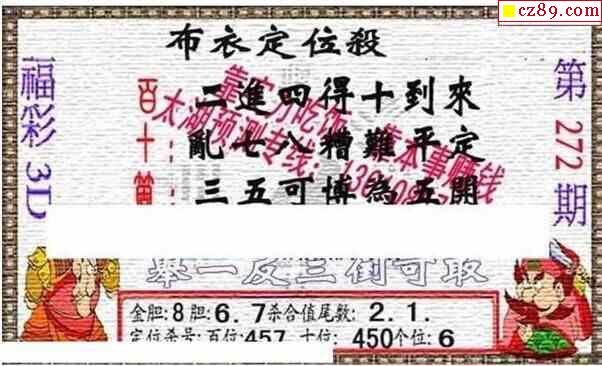 cz89.com
布衣定位殺
福彩 3D
第 272 期
百: 二進四得十到來
十: 亂七八糟難平定
三五可博為五開
靠实力吃饭
本事赚钱
太湖预测专线:
舉一反三倒可取
金胆:8 胆:6.7杀合值尾数: 2.1.
定位杀号:百位:457 十位: 450个位:6